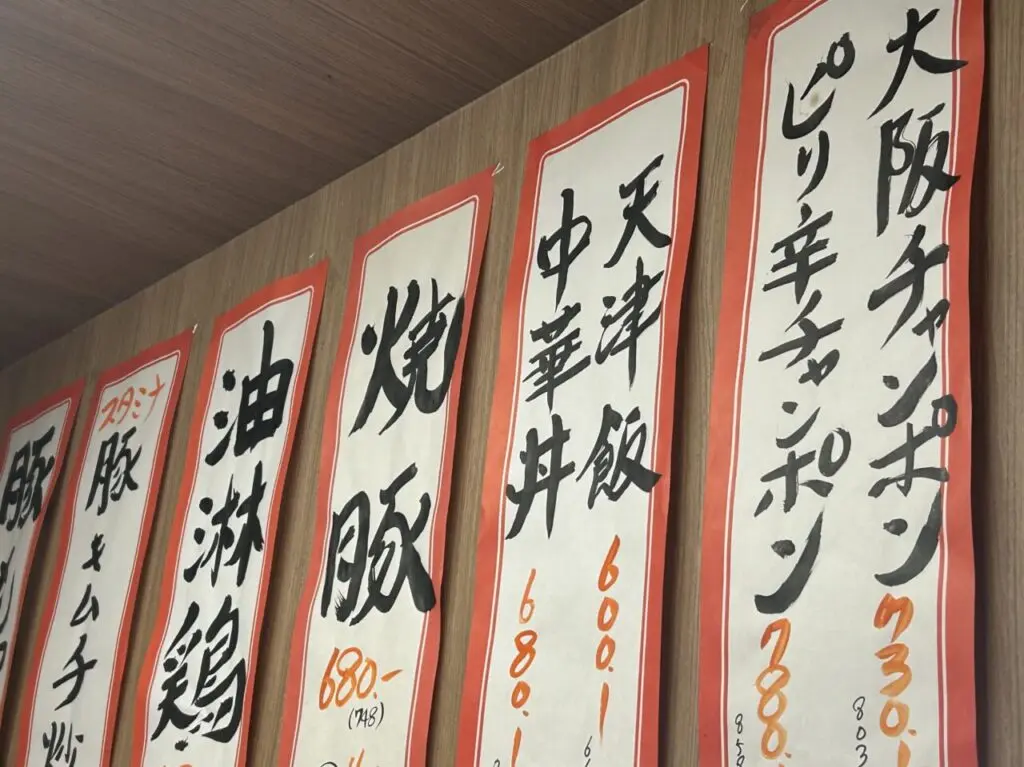 大阪チャンポン 730.-
803
ピリ辛チャンポン 788.
858
天津飯 600.-
6
中華丼 680.-
焼豚
680.-
(748)
油淋鶏
スタミナ
豚キムチ炒
豚